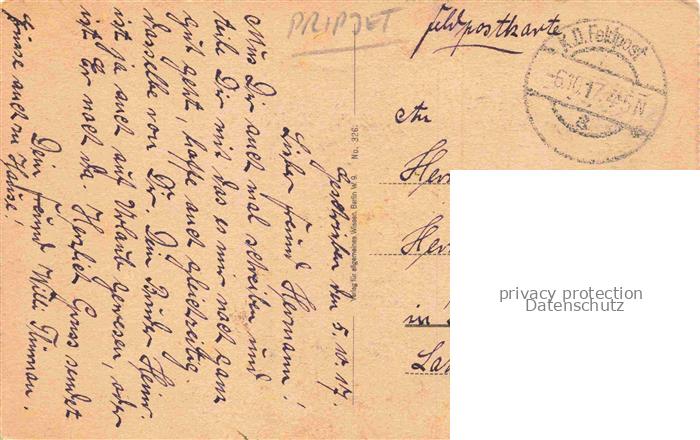 PRIPJET
Feldpostkarte
K.D. Feldpost
-6.10.17. 4-5N
a
An
Her
Her
in
La
Verlag für allgemeines Wissen, Berlin W 9. No. 326.
Geschrieben den 5.10.17.
Lieber Freund Hermann!
Mus Dir auch mal schreiben und
teile Dir mit das es mir noch ganz
gut geht, hoffe auch gleichzeitig
dasselbe von Dir. Dein Bruder Heinr.
ist ja auch auf Urlaub gewesen, oder
ist Er noch da. Herzlich Gruss sendet
Dein Freund Willi
Grüsse auch zu Hause!
privacy protection
Datenschutz